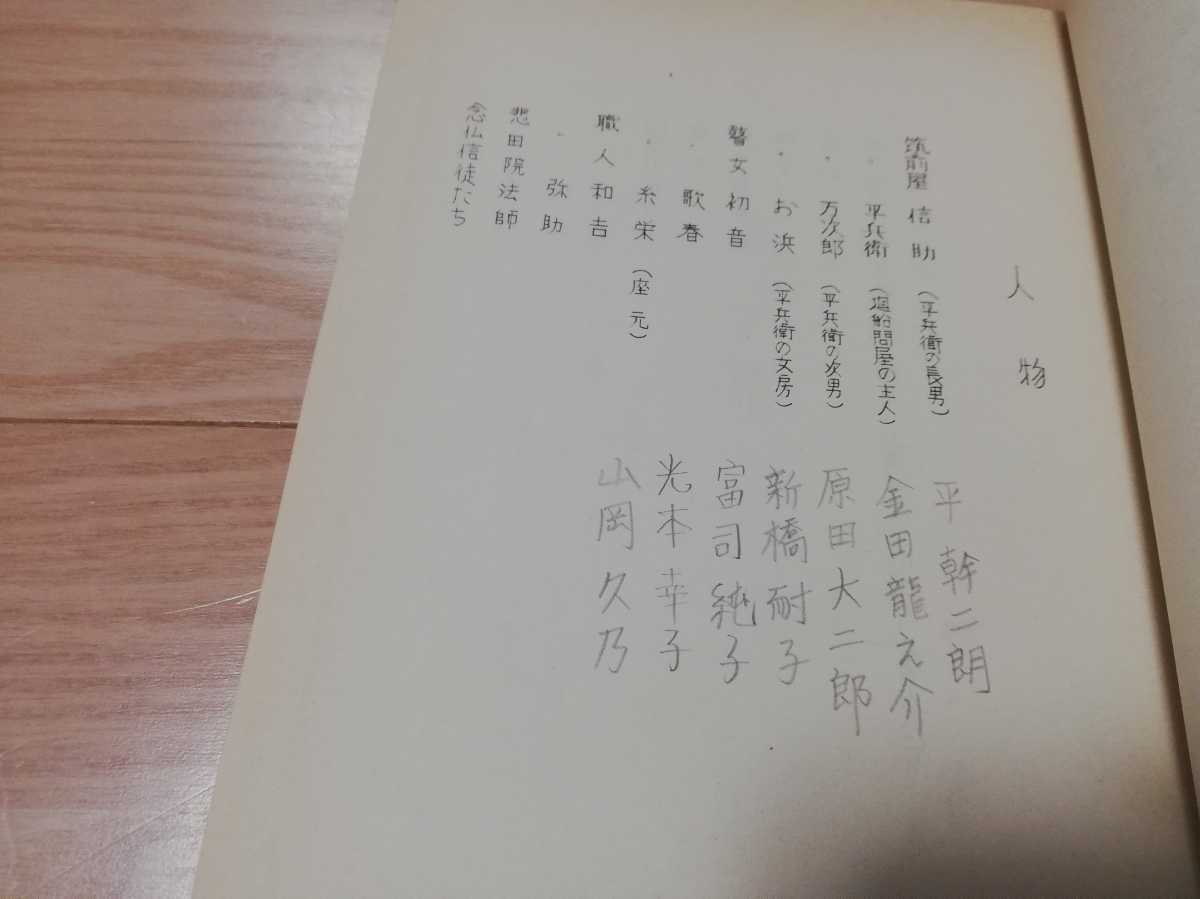 人物
筑前屋 信助 (平兵衛の長男) 平 幹二朗
〃 平兵衛 (廻船問屋の主人) 金田龍之介
〃 万次郎 (平兵衛の次男) 原田大二郎
〃 お浜 (平兵衛の文房) 新橋耐子
瞽女 初音 富司純子
〃 歌春 光本幸子
〃 糸栄 (座元) 山岡久乃
職人 和吉
〃 弥助
悲田院法師
念仏信徒たち